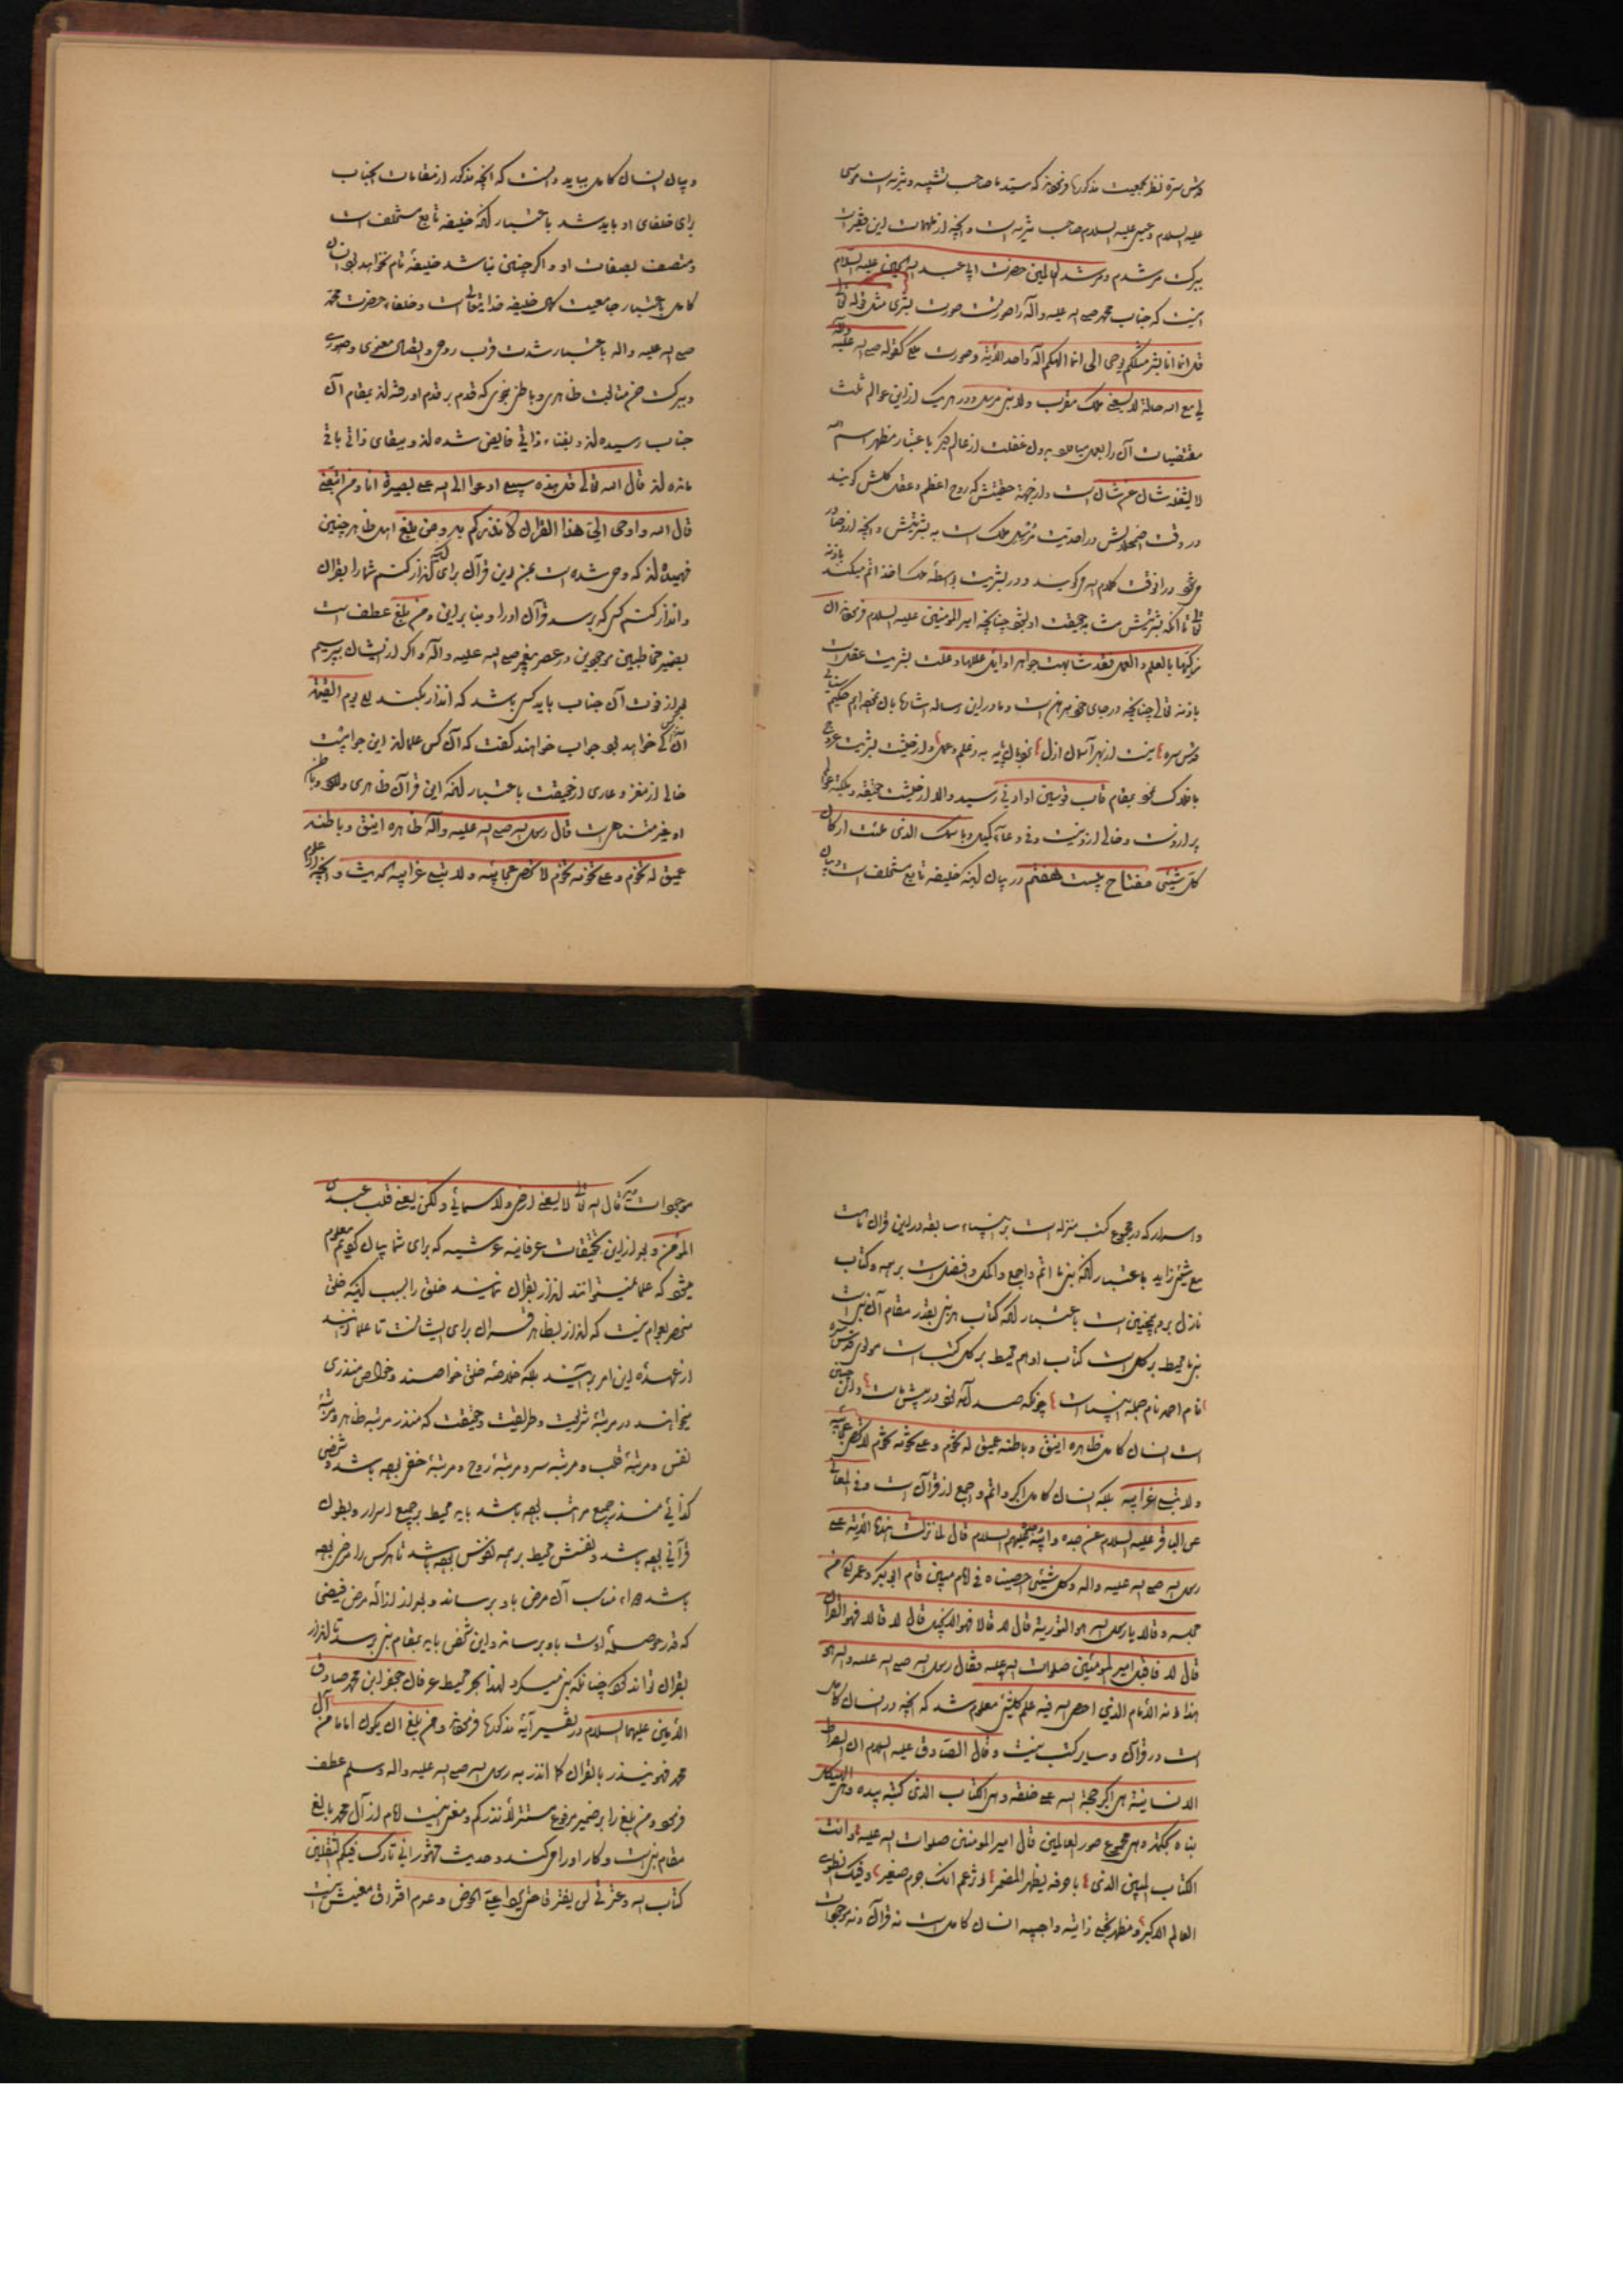 قدس سره نظر بجمعیت مذکورها فرموده‌اند که سید ما صاحب تشبیه و تنزیه است موسی
علیه السلام و عیسی علیه السلام صاحب تنزیه است و آنچه از ملهمات این فقیر است
ببرکت مرشدم و مرشد العالمین حضرت ابی عبد الله الحسین علیه السلام
اینست که جناب محمد صلی الله علیه و آله را صورتست صورت بشری مثل قوله تعالی
قل انما انا بشر مثلکم یوحی الی انما الهکم اله واحد الآیة و صورت ملکی کقوله صلی الله علیه وآله
لی مع الله حالة لا یسعنی ملک مقرب و لا نبی مرسل و در هر یک از این عوالم ثلث
مقتضیات آن را بعمل میآورد بدون غفلت از عالم دیگر باعتبار مظهر اسم
لا یشغله شأن عن شأن است و از جهة حقیقتش که روح اعظم و عقل کلش گویند
در وقت اضمحلالش در احدیت مرسل ملک است به بشریتش و آنچه از او صادر
میشود در آنوقت کلام الله میگویند و در بشریت بواسطه ملک اخذ اتم میکند باذنه
تعالی تا آنکه بشریتش مشابه حقیقت او بشود چنانچه امیر المؤمنین علیه السلام فرموده ان
زکیها بالعلم و العمل فقد شابهت جواهر اوائل عللها و علت بشریت عقلست
باذنه تعالی چنانچه در جای خود مبرهن است و ما در این رساله اشارها بآن نموده‌ایم حکیم سنائی
قدس سره نیست از بهر آسمان ازل نردبان پایه به ز علم و عمل و از حیثیت بشریت عروج
با فلک نمود بمقام قاب قوسین او ادنی رسید والا از حیثیت حقیقة و ملکیة عوالم
پر از اوست و خالی از او نیست و فی دعاء کمیل و باسمک الذی ملئت ارکان
کل شیئی مفتاح بیست هفتم در بیان اینکه خلیفه تابع مستخلف است و بیان
و بیان انسان کامل بباید دانست که آنچه مذکور از مقامات بجناب
برای خلفای او باید شد باعتبار آنکه خلیفه تابع مستخلف است
و متصف بصفات او و اگر چنین نباشد خلیفة تام نخواهد بود انسان
کامل باعتبار جامعیت کلی خلیفه خدایتعالی است و خلفاء حضرت محمد
صلی الله علیه و اله باعتبار شدت قرب روحی و اتصال معنوی و صوری
و ببرکت حسن متابعت ظاهری و باطنی نبوی که قدم بر قدم او رفته‌اند بمقام آن
جناب رسیده‌اند و بفناء ذاتی فایض شده‌اند و ببقای ذاتی باقی
مانده‌اند قال الله تعالی قل هذه سبیلی ادعوا الی الله علی بصیرة انا و من اتبعنی
قال الله و اوحی الی هذا القرآن لانذرکم به و من بلغ اهل ظاهر چنین
فهمیده‌اند که وحی شده است بمن این قرآن برای آنکه انذار کنم شما را بقرآن
و انذار کنم کسی که برسد قرآن او را و بنا بر این و من بلغ عطف است
بضمیر مخاطبین موجودین در عصر پیغمبر صلی الله علیه و آله و اگر از ایشان بپرسیم
بعد از فوت آن جناب باید کسی باشد که انذار بکند الی یوم القیمة
آن کس کی خواهد بود جواب خواهند گفت که آن کس علمااند این جوابیست
خالی از مغز و عاری از حقیقت باعتبار آنکه این قرآن ظاهری دارد و باطن
او غیر متناهی است قال رسول الله صلی الله علیه و آله ظاهره انیق و باطنه
عمیق له تخوم و علی تخومه تخوم لا تحصی عجائبه و لا تبلی غرائبه الحدیث و آنچه از علوم
و اسرار که در مجموع کتب منزله است بر انبیاء سابقه در این قرآن ثابتست
مع شیئی زاید باعتبار آنکه نبی ما اتم و اجمع و اکمل و افضل است بر همه و کتاب
نازل بر او همچنین است باعتبار آنکه کتاب هر نبی بقدر مقام آن نبی است
نبی ما محیط بر کل است کتاب او هم محیط بر کل کتب است مولوی قدس سره
نام احمد نام جمله انبیاست چونکه صد آمد نود در پیش ماست و همچنین
است انسان کامل ظاهره انیق و باطنه عمیق له تخوم و علی تخومه تخوم لا تحصی عجائبه
و لا تبلی غرائبه بلکه انسان کامل اکبر و اتم و اجمع از قرآن است و فی المعانی
عن الباقر علیه السلام عن جده و ابیه علیهم السلام قال لما نزلت هذه الآیة علی
رسول الله صلی الله علیه و اله و کل شیئی احصیناه فی امام مبین قام ابی بکر و عمر من
مجلسه و قالا یا رسول الله هو التوریة قال لا قالا فهو الانجیل قال لا قالا فهو القرآن
قال لا فاقبل امیر المؤمنین صلوات الله علیه فقال رسول الله صلی الله علیه و اله هو
هذا انه الامام الذی احصی الله فیه علم کلشیئ معلوم شد که آنچه در انسان کامل
است در قرآن و سایر کتب نیست و قال الصادق علیه السلام ان الصورة
الانسانیة هی اکبر حجة الله علی خلقه و هی الکتاب الذی کتبه بیده و هی الهیکل
بناه بحکمته و هی مجموع صور العالمین قال امیر المؤمنین صلوات الله علیه و انت
الکتاب المبین الذی باحرفه یظهر المضمر اتزعم انک جرم صغیر و فیک انطوی
العالم الاکبر و مظهر تجلی ذاتیه واجبیه انسان کامل است نه قرآن و نه موجودات
موجودات دیگر قال الله تعالی لا یسعنی ارضی و لا سمائی و لکن یسعنی قلب عبدی
المؤمن و بعد از این تحقیقات عرفانیه عرشیه که برای شما بیان کردیم معلوم
میشود که علما نمیتوانند انذار بقرآن نمایند خلق را بسبب اینکه خلق
منحصر بعوام نیست که انذار بظاهر قرآن برای ایشانست تا علما توانند
از عهدۀ این امر برآیند بلکه خلاصه خلق خواصند و خواص منذری
میخواهند در مرتبۀ شریعت و طریقت و حقیقت که منذر مرتبه ظاهر و مرتبۀ
نفس و مرتبۀ قلب و مرتبه سر و مرتبۀ روح و مرتبۀ خفی بوده باشد و شخصی
کذائی منذر جمیع مراتب بوده باشد باید محیط بر جمیع اسرار و بطون
قرآنی بوده باشد و نفسش محیط بر همه نفوس بوده باشد تا هر کس را مرض بوده
باشد دواء مناسب آن مرض باو برساند و بعد از ازالۀ مرض فیضی
که قدر حوصلۀ اوست باو برساند و این شخص باید بمقام نبی برسد تا انذار
بقرآن تواند کرد چنانکه نبی میکرد لهذا بحر محیط عرفان جعفر ابن محمد صادق
الامین علیهما السلام در تفسیر آیۀ مذکورها فرموده و من بلغ ان یکون اماما من آل
محمد فهو ینذر بالقرآن کما انذر به رسول الله صلی الله علیه و اله و سلم عطف
فرموده و من بلغ را بر ضمیر مرفوع مستتر لأنذرکم و معنی اینست امام از آل محمد بالغ
مقام نبی است و کار او را میکند و حدیث مشهور انی تارک فیکم الثقلین
کتاب الله و عترتی لن یفترقا حتی یردا علی الحوض و عدم افتراق معنیش اینست